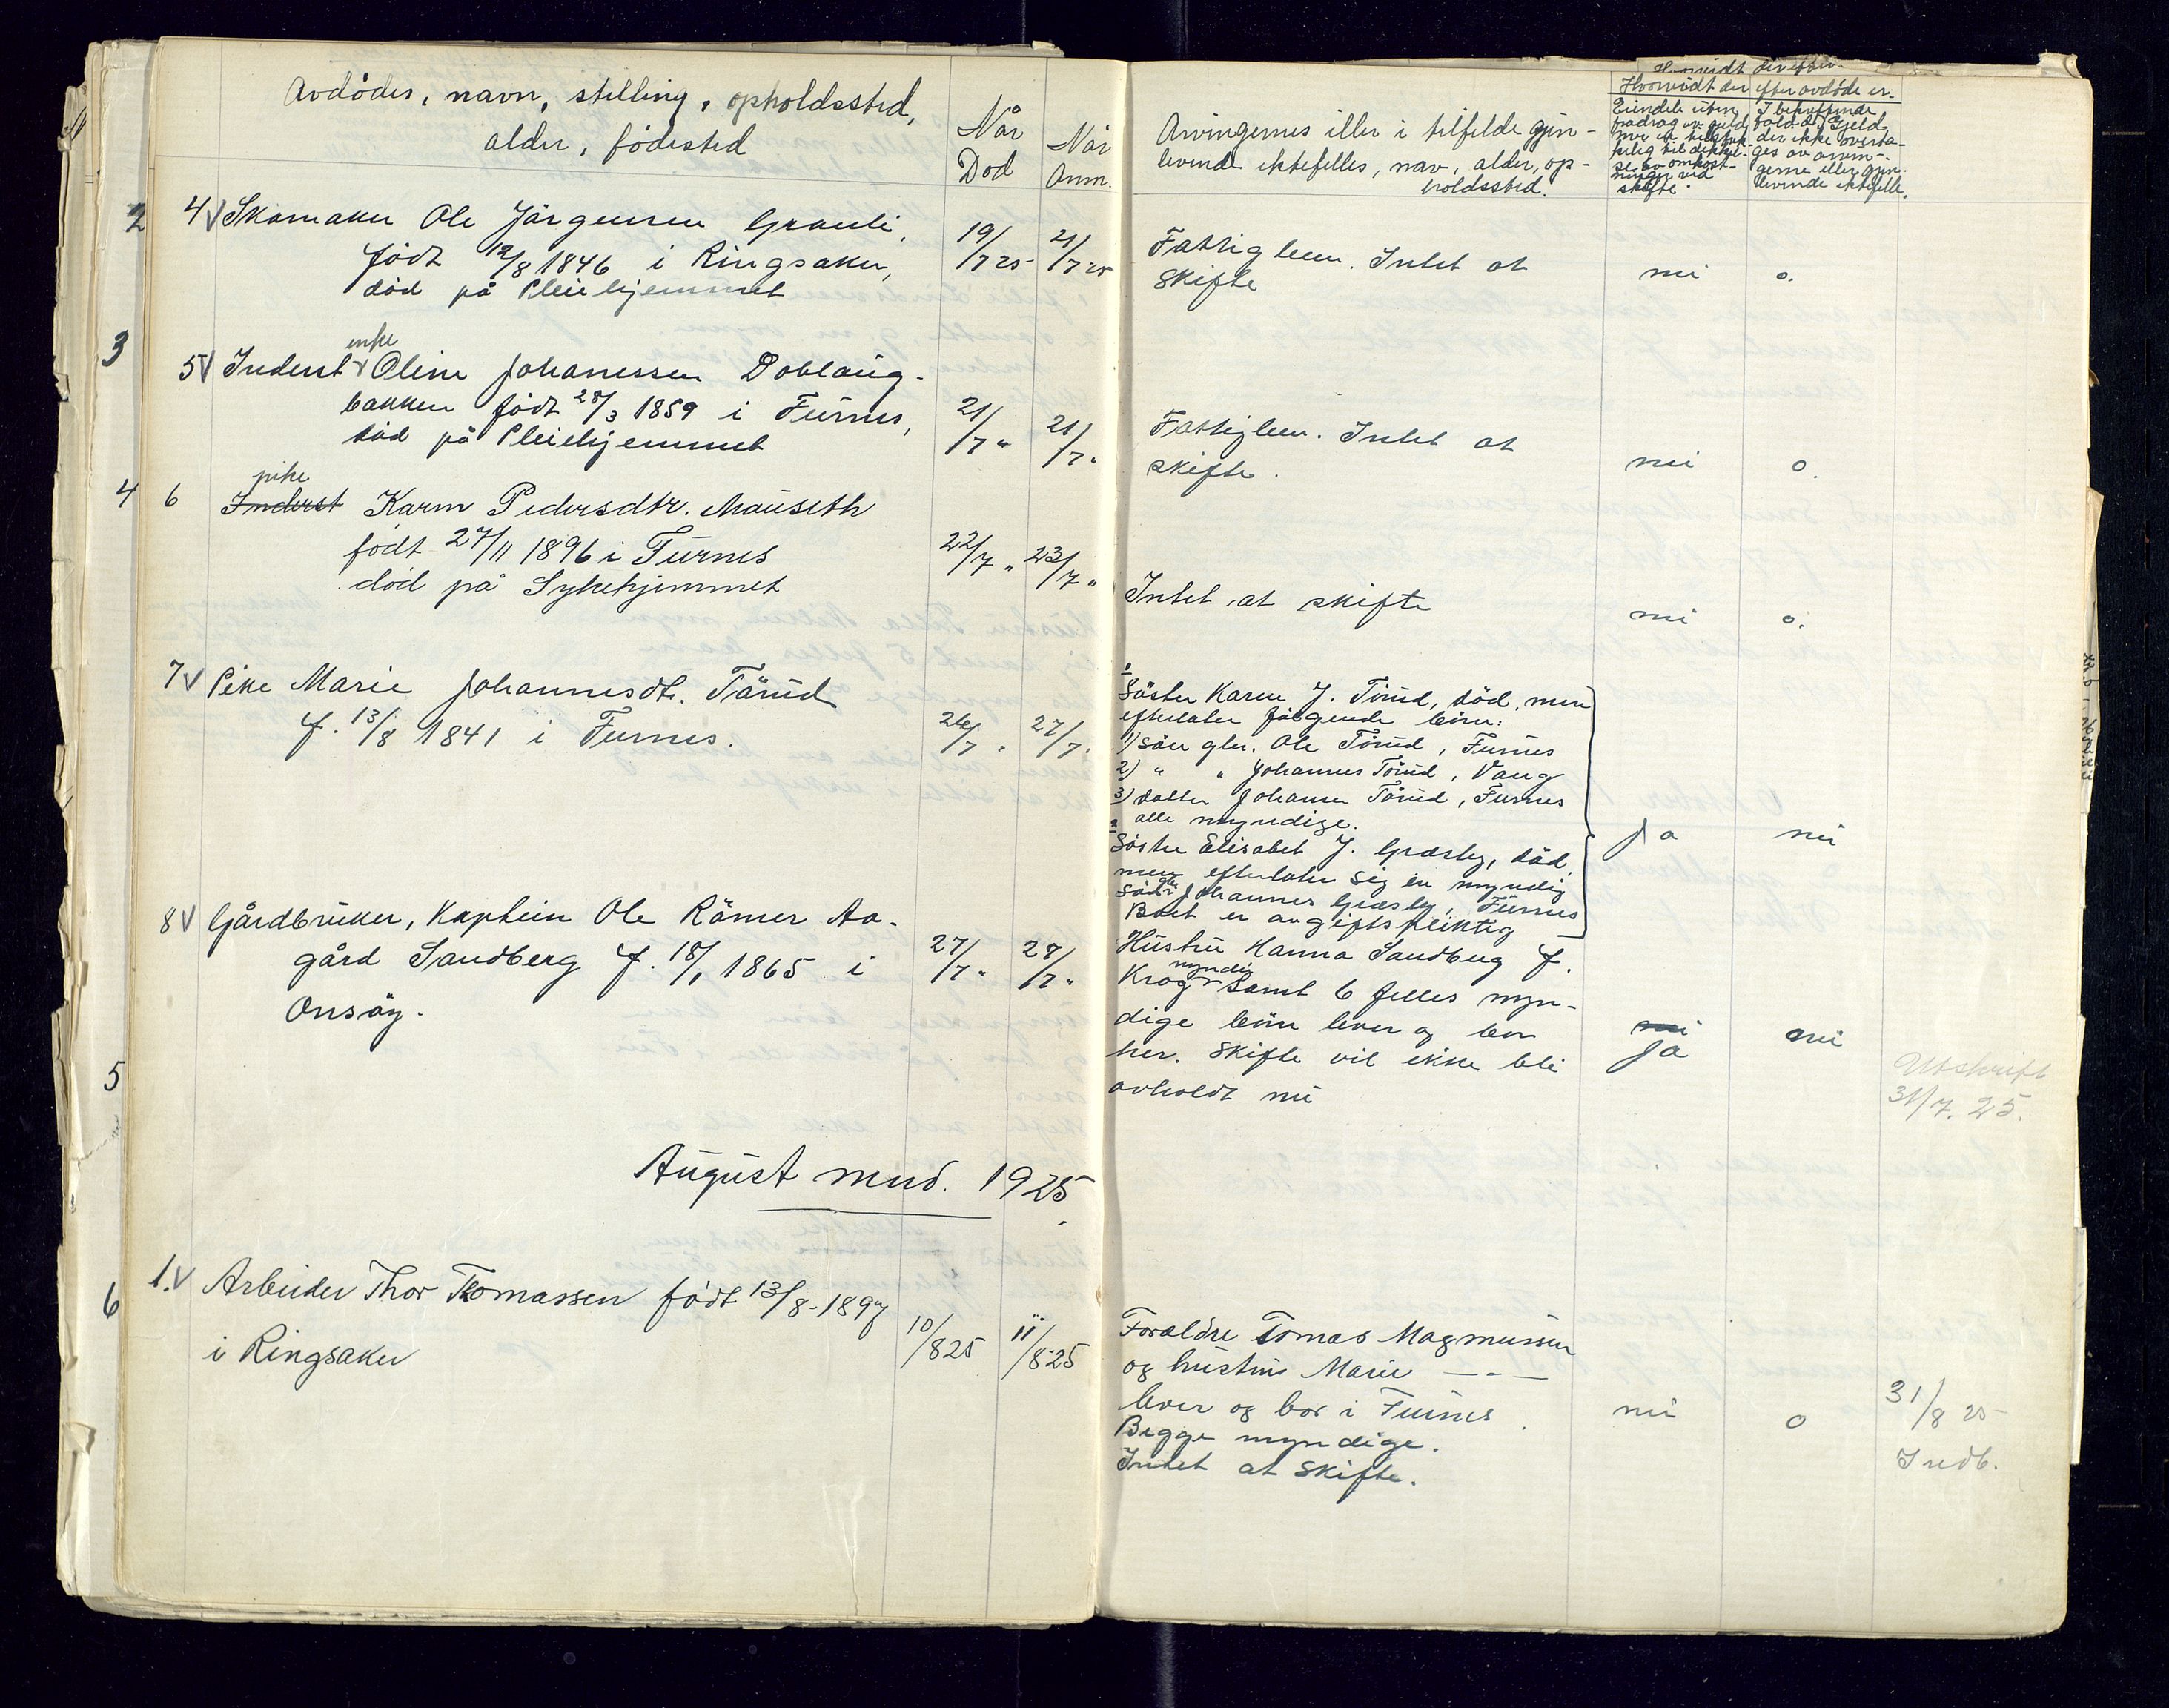 Avdödes, navn, stilling, opholdssted,
alder, födested
Når
Död
Når
Anm.
Arvingernes eller i tilfelde gjen-
levende ektefelles, nav, alder, op-
holdssted.
Hvorvidt der efter avdöde er.
Eiendele uten
fradrag av gjeld
mer en tilstrek-
kelig til dekkel-
se av omkost-
ninger ved
skifte.
I bekreftende
fald at Gjeld
der ikke overta-
ges av arvin-
gerne eller gjen-
levende ektefelle.
2
4 V Skomaker Ole Jörgensen Granli,
född 12/8 1846 i Ringsaker,
död på Pleiehjemmet
19/7 25
21/7 25
Fattiglem. Intet at
skifte
nei
o.
3
enke
5 V Inderst v Oline Johanessen Doblaug-
bakken född 28/3 1859 i Furnes,
död på Pleiehjemmet
21/7 "
21/7 "
Fattiglem. Intet at
skifte.
nei
o.
pike
4 6 Inderst Karen Pedersdtr. Mauseth
född 27/11 1896 i Furnes
död på Sykehjemmet
22/7 "
23/7 "
Intet at skifte
nei
o.
7 V Pike Marie Johannesdtr. Törud
f. 13/8 1841 i Furnes.
26/7 "
27/7 "
1
Söster Karen J. Törud, död, men
efterlater fölgende börn:
1) Sön gbr. Ole Törud, Furnes
2) " " Johannes Törud, Vang
3) datter Johanne Törud, Furnes
alle myndige.
2
Söster Elisabet J. Græsby, död,
men efterlater sig en myndig
sön gbr. Johannes Græsby, Furnes
Boet er avgiftspliktig
ja
nei
8 V Gårdbruker, Kaptein Ole Römer Aa-
gård Sandberg f. 18/1 1865 i
Onsöy.
27/7 "
28/7 "
Hustru Hanna Sandberg f.
myndig
Krog v samt 6 felles myn-
dige börn lever og bor
her. Skifte vil ikke bli
avholdt nu
nei
ja
nei
Utskrift
31/7. 25.
5
August mnd. 1925
6
1. V Arbeider Thor Thomassen född 13/8-1897
i Ringsaker
10/8 25
11/8-25
Forældre Tomas Magnussen
og hustru Marie — " —
lever og bor i Furnes.
Begge myndige.
Intet at skifte.
nei
o
31/8 25
Indb.